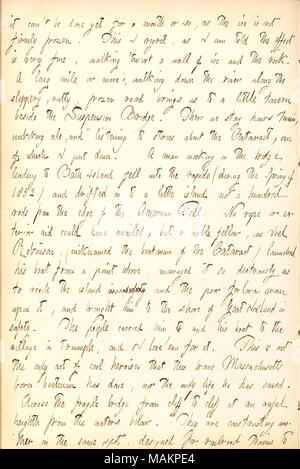 it can't be done yet for a month or so, as the ice is not
firmly frozen. This I regret, as I am told the effect
is very fine, walking 'twixt a wall of ice and the rock.
A long mile or more, walking down the river along the
slippery, rutty, frozen road brings us to a little tavern
beside the Suspension Bridge. There we stay
imbibing ale, and listening to stories about the Cataract, one
of which I put down. A man working on the bridge
leading to Bath island fell into the rapids (during the Spring of
1852) and drifted on to a little island not a hundred
rods from the edge of the American Fall. No rope or ex-
terior aid could have availed, but a noble fellow, one Joel
Robinson, (nicknamed the boatman of the Cataract) launched
his boat from a point above, managed it so dexterously as
to reach the island and the poor forlorn man
upon it, and brought him to the shore of Goat Island in
safety. The people carried him to and his boat to the
village in triumph, and I love em for it. This is not
the only act of cool heroism that this brave Massachusetts
born boatman has done, nor the only life he has saved.
Across the fragile bridge from cliff to cliff at an awful
heighth from the waters below. They are constructing an-
other in the same spot, designed for railroad trains to
alamy
Image ID: MAKPE4
www.alamy.com